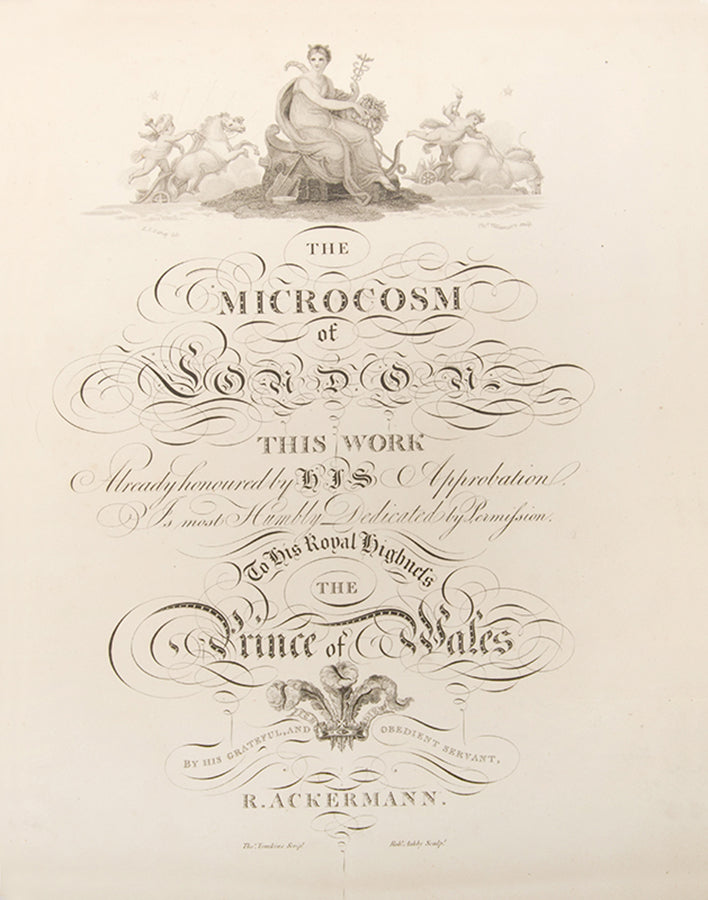 THE
MICROCOSM
of
LONDON
THIS WORK
Already honoured by HIS Approbation.
Is most Humbly Dedicated by Permission.
To His Royal Highneſs
THE
Prince of Wales
BY HIS GRATEFUL, AND OBEDIENT SERVANT,
R. ACKERMANN.
Thos. Tomkins Script. Robt. Ashby Sculpt.